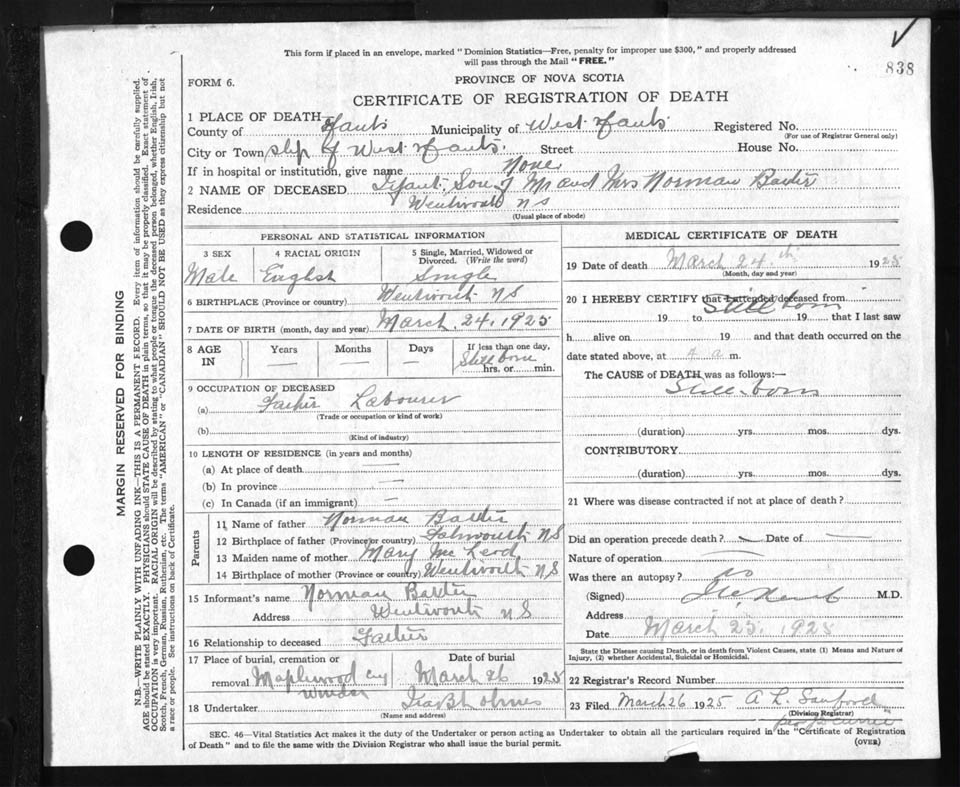 This form if placed in an envelope, marked "Dominion Statistics—Free, penalty for improper use $300," and properly addressed
will pass through the Mail "FREE."
838
FORM 6.
PROVINCE OF NOVA SCOTIA
CERTIFICATE OF REGISTRATION OF DEATH
1 PLACE OF DEATH—
County of Hants Municipality of West Hants Registered No.
(For use of Registrar General only)
City or Town ship of West Hants. Street House No.
If in hospital or institution, give name None
2 NAME OF DECEASED Infant Son of Mr and Mrs Norman Baxter
Residence Wentworth NS
(Usual place of abode)
PERSONAL AND STATISTICAL INFORMATION
3 SEX 4 RACIAL ORIGIN 5 Single, Married, Widowed or
Divorced. (Write the word)
Male English Single
6 BIRTHPLACE (Province or country) Wentworth NS
7 DATE OF BIRTH (month, day and year) March 24, 1925
8 AGE IN Years Months Days If less than one day,
Still borne
hrs. or min.
9 OCCUPATION OF DECEASED
(a) Father Labourer
(Trade or occupation or kind of work)
(b)
(Kind of industry)
10 LENGTH OF RESIDENCE (in years and months)
(a) At place of death —
(b) In province —
(c) In Canada (if an immigrant) —
Parents
11 Name of father Norman Baxter
12 Birthplace of father (Province or country) Falmouth NS
13 Maiden name of mother Mary McLeod
14 Birthplace of mother (Province or country) Wentworth NS
15 Informant's name Norman Baxter
Address Wentworth NS
16 Relationship to deceased Father
17 Place of burial, cremation or Date of burial
removal Maplewood Cy March 26 1925
Windsor
18 Undertaker
(Name and address)
MEDICAL CERTIFICATE OF DEATH
19 Date of death March 24th 1925
(Month, day and year)
20 I HEREBY CERTIFY that I attended deceased from
Still born
19 to 19 that I last saw
h alive on 19 and that death occurred on the
date stated above, at 4 a m.
The CAUSE of DEATH was as follows:—
Still born
(duration) yrs. mos. dys.
CONTRIBUTORY
(duration) yrs. mos. dys.
21 Where was disease contracted if not at place of death?
Did an operation precede death? — Date of —
Nature of operation —
Was there an autopsy? no
(Signed) M.D.
Address
Date March 25. 1925
State the Disease causing Death, or in death from Violent Causes, state (1) Means and Nature of
Injury, (2) whether Accidental, Suicidal or Homicidal.
22 Registrar's Record Number
23 Filed March 26 1925 A L Sanford
(Division Registrar)
SEC. 46—Vital Statistics Act makes it the duty of the Undertaker or person acting as Undertaker to obtain all the particulars required in the "Certificate of Registration
of Death" and to file the same with the Division Registrar who shall issue the burial permit.
(OVER)
MARGIN RESERVED FOR BINDING
N.B.—WRITE PLAINLY WITH UNFADING INK—THIS IS A PERMANENT RECORD. Every item of information should be carefully supplied.
AGE should be stated EXACTLY. PHYSICIANS should STATE CAUSE OF DEATH in plain terms, so that it may be properly classified. Exact statement of
OCCUPATION is very important. RACIAL ORIGIN will be described by stating to what people or tongue the deceased person belonged, whether English, Irish,
Scotch, French, German, Russian, Ruthenian, etc. The terms "AMERICAN" or "CANADIAN" SHOULD NOT BE USED as they express citizenship but not
a race or people. See instructions on back of Certificate.